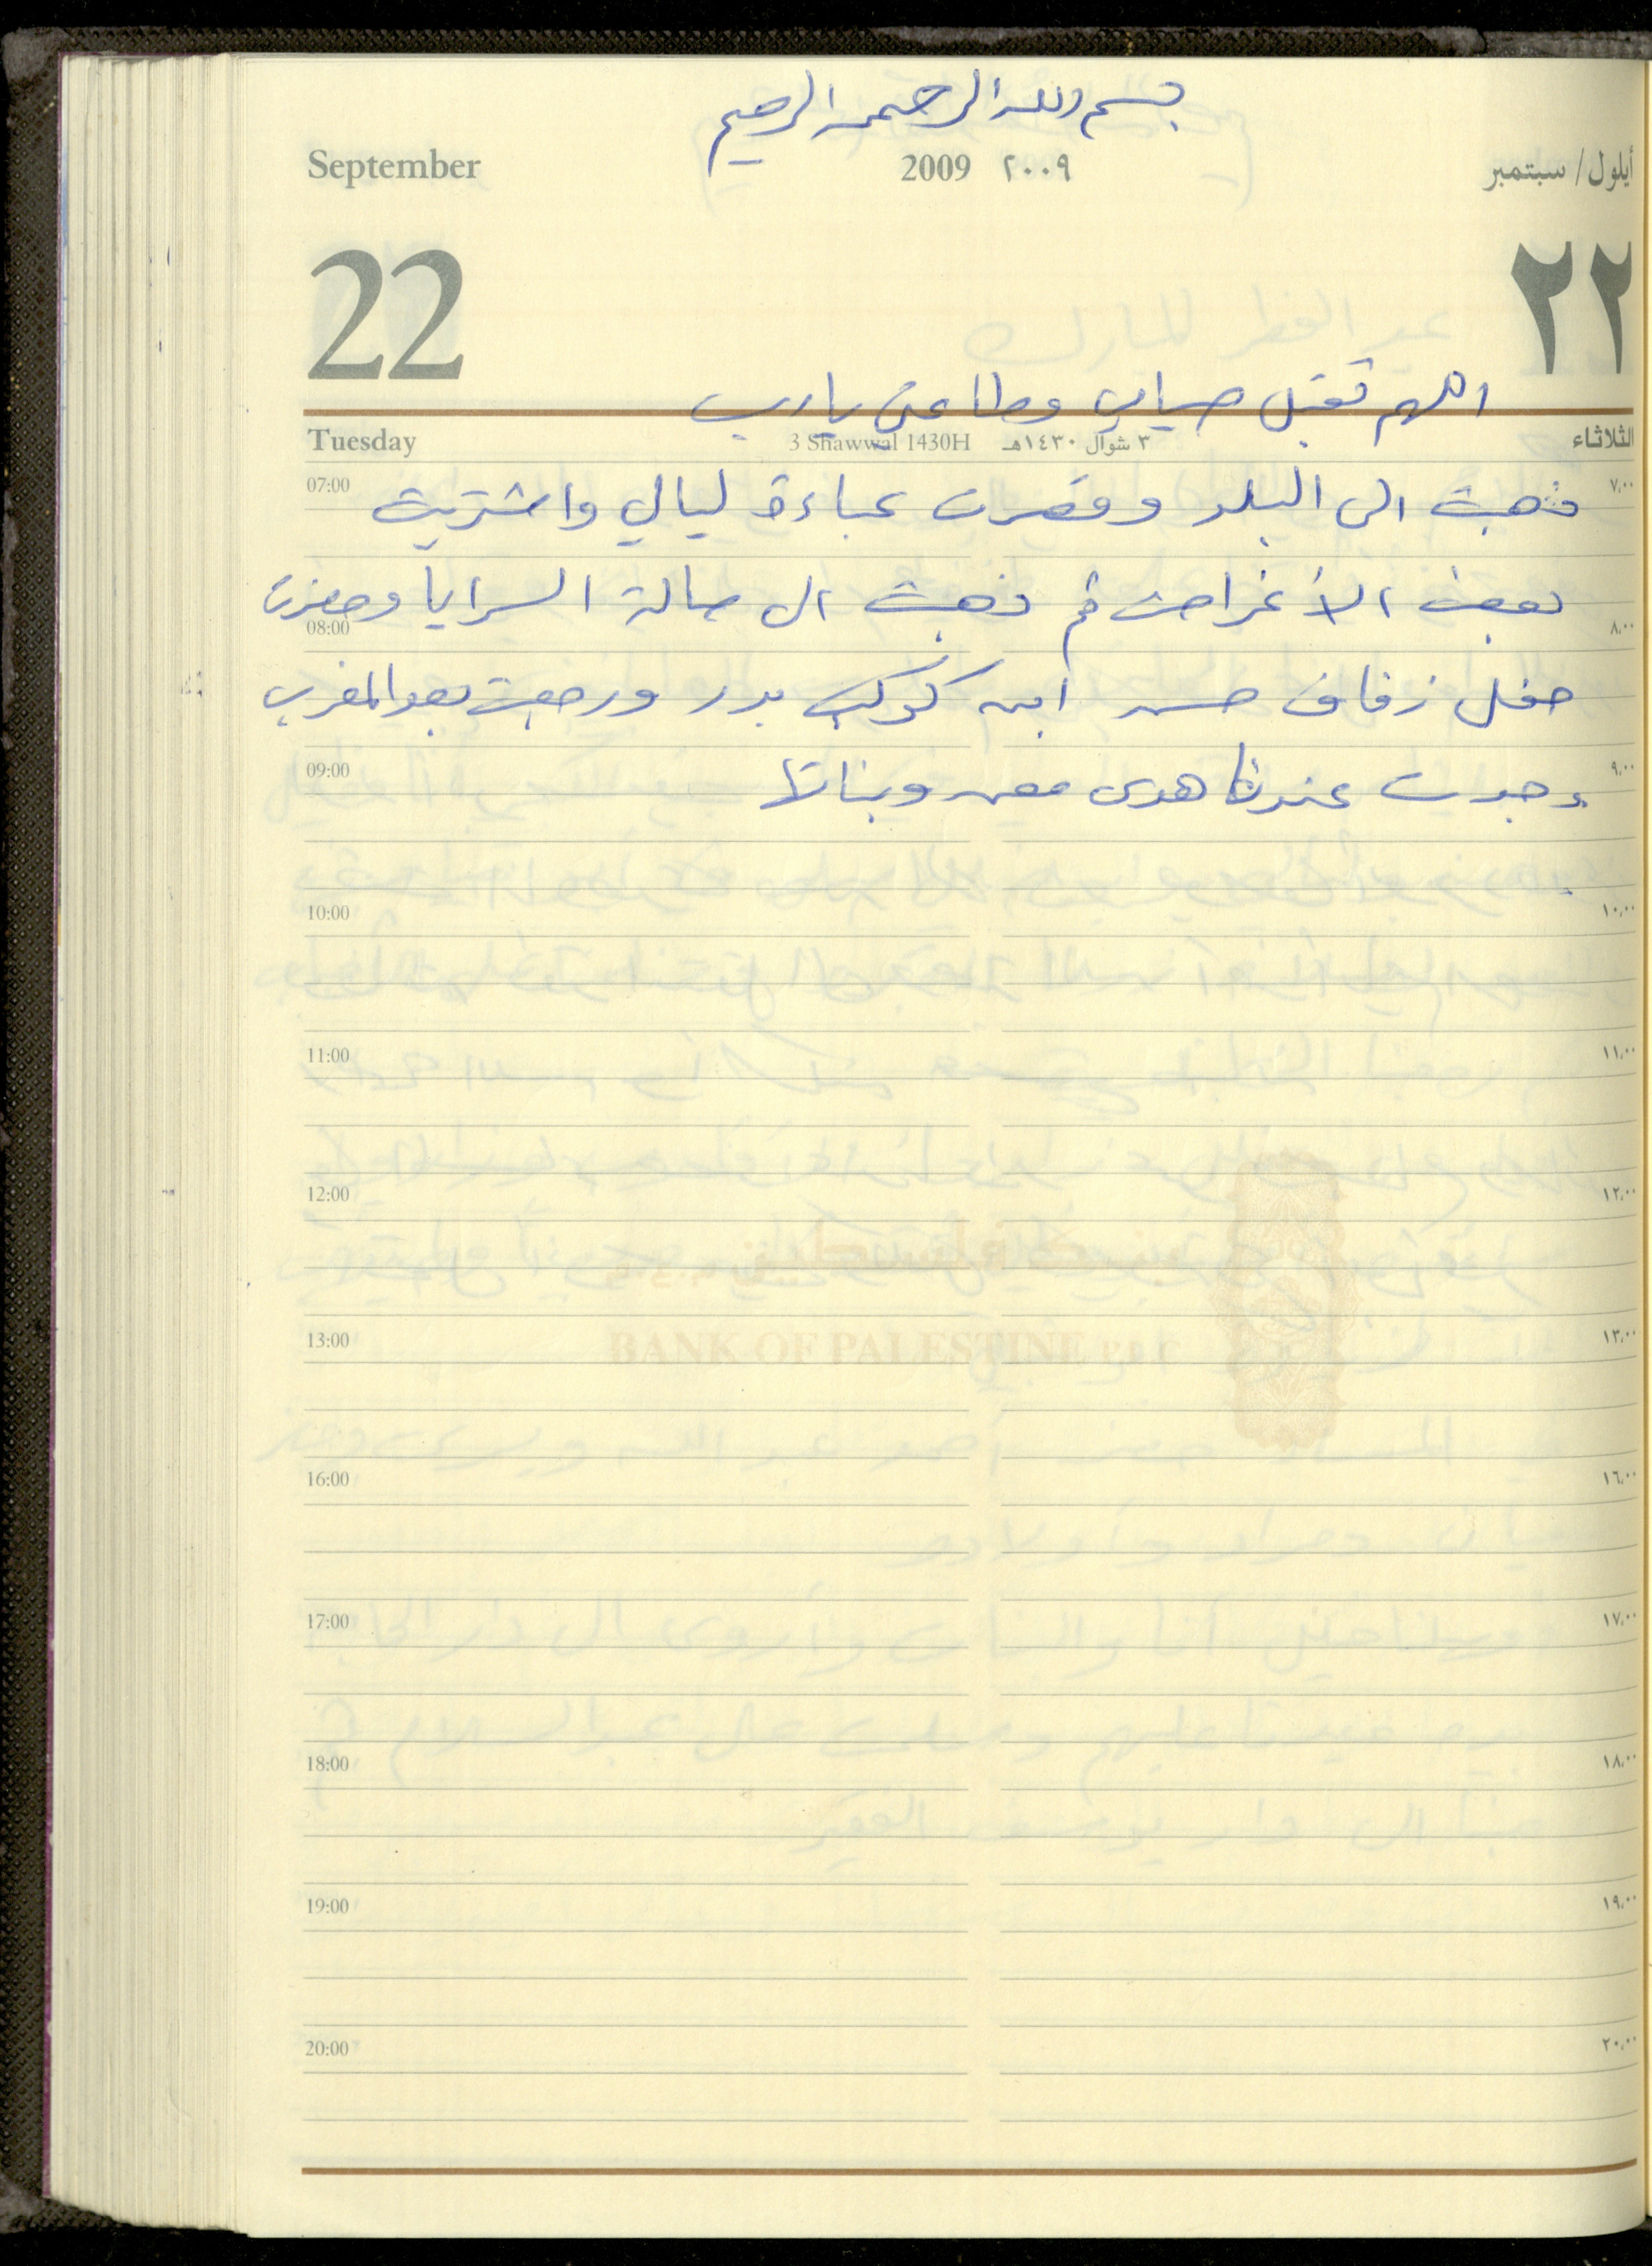 بسم الله الرحمن الرحيم
September 2009 ٢٠٠٩ أيلول/سبتمبر
22 ٢٢
اللهم تقبل صيامي وطاعتي يارب
Tuesday 3 Shawwal 1430H ٣ شوال ١٤٣٠هـ الثلاثاء
07:00 ٧,٠٠
ذهبت الى البلد وقصرت عباءة ليالي واشتريت
بعض الأغراض ثم ذهبت الى صالة السرايا وحضرت
08:00 ٨,٠٠
حفل زفاف حسن ابن كوكب بدر ورجعت بعد المغرب
09:00 ٩,٠٠
وجدت عندنا هدى وبناتها
10:00 ١٠,٠٠
11:00 ١١,٠٠
12:00 ١٢,٠٠
بنك فلسطين
13:00 ١٣,٠٠
BANK OF PALESTINE P.L.C
16:00 ١٦,٠٠
17:00 ١٧,٠٠
18:00 ١٨,٠٠
19:00 ١٩,٠٠
20:00 ٢٠,٠٠